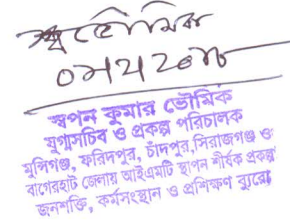 স্বপন কুমার ভৌমিক
যুগ্মসচিব ও প্রকল্প পরিচালক
মুন্সিগঞ্জ, ফরিদপুর, চাঁদপুর,সিরাজগঞ্জ ও
বাগেরহাট জেলায় আইএমটি স্থাপন শীর্ষক প্রকল্প
জনশক্তি, কর্মসংস্থান ও প্রশিক্ষণ ব্যুরো